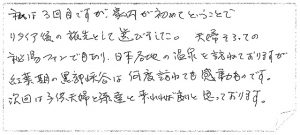 私は3回目ですが、家内が初めてということで
リタイア後の旅先として選びました。夫婦そろっての
秘湯ファンであり、日本各地の温泉を訪れておりますが
紅葉期の黒部峡谷は何度訪れても感動ものです。
次回は子供夫婦と孫達と来れれば良いと思っております。